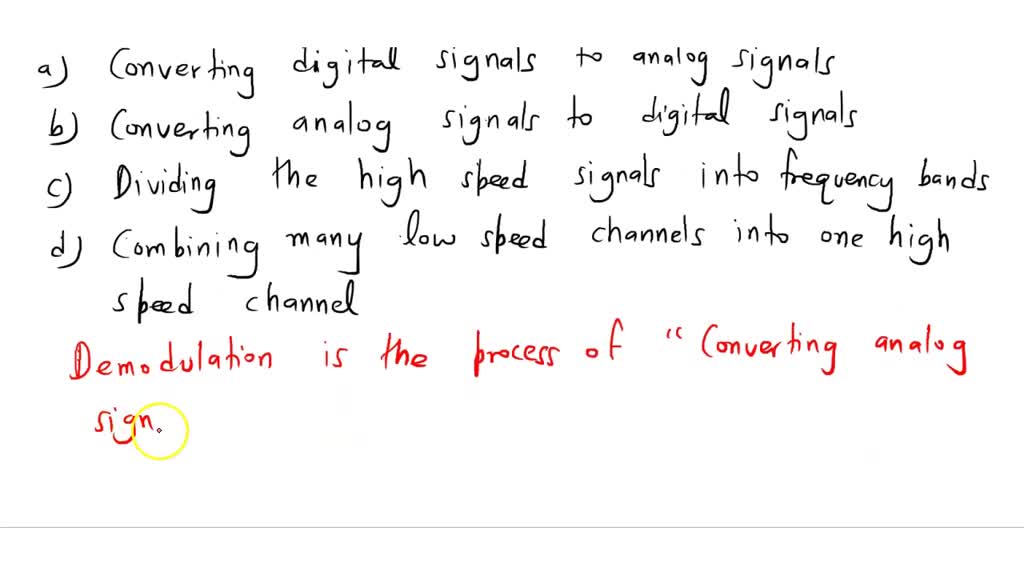 a) Converting digital signals to analog signals
b) Converting analog signals to digital signals
c) Dividing the high speed signals into frequency bands
d) Combining many low speed channels into one high
speed channel
Demodulation is the process of "Converting analog
sign